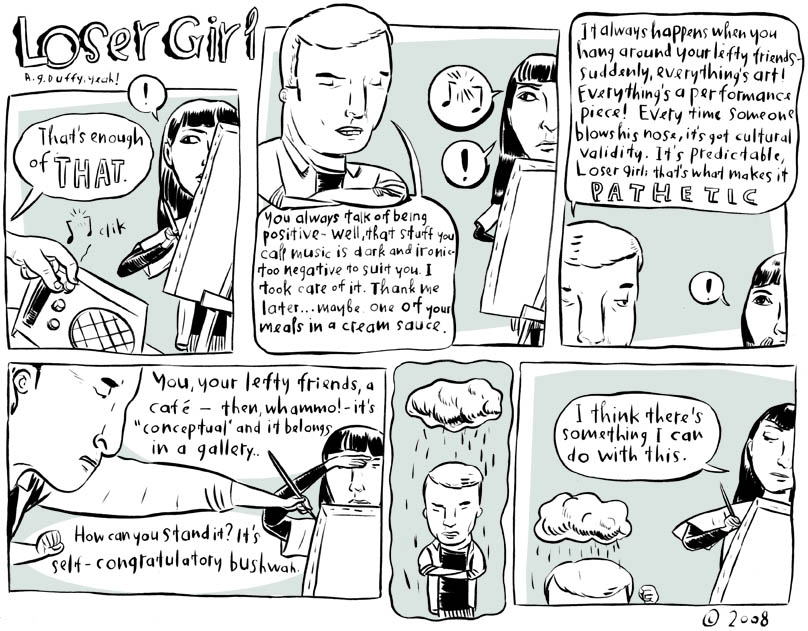 Loser Girl
A.g. Duffy, yeah!
!
That's enough
of THAT.
clik
!
You always talk of being
positive- Well, that stuff you
call music is dark and ironic-
too negative to suit you. I
took care of it. Thank me
later... maybe one of your
meals in a cream sauce.
It always happens when you
hang around your lefty friends-
suddenly, everything's art!
Everything's a performance
piece! Every time someone
blows his nose, it's got cultural
validity. It's predictable,
Loser Girl: that's what makes it
PATHETIC
!
You, your lefty friends, a
café — then, whammo!- it's
"conceptual" and it belongs
in a gallery..
How can you stand it? It's
self-congratulatory bushwah.
I think there's
something I can
do with this.
© 2008